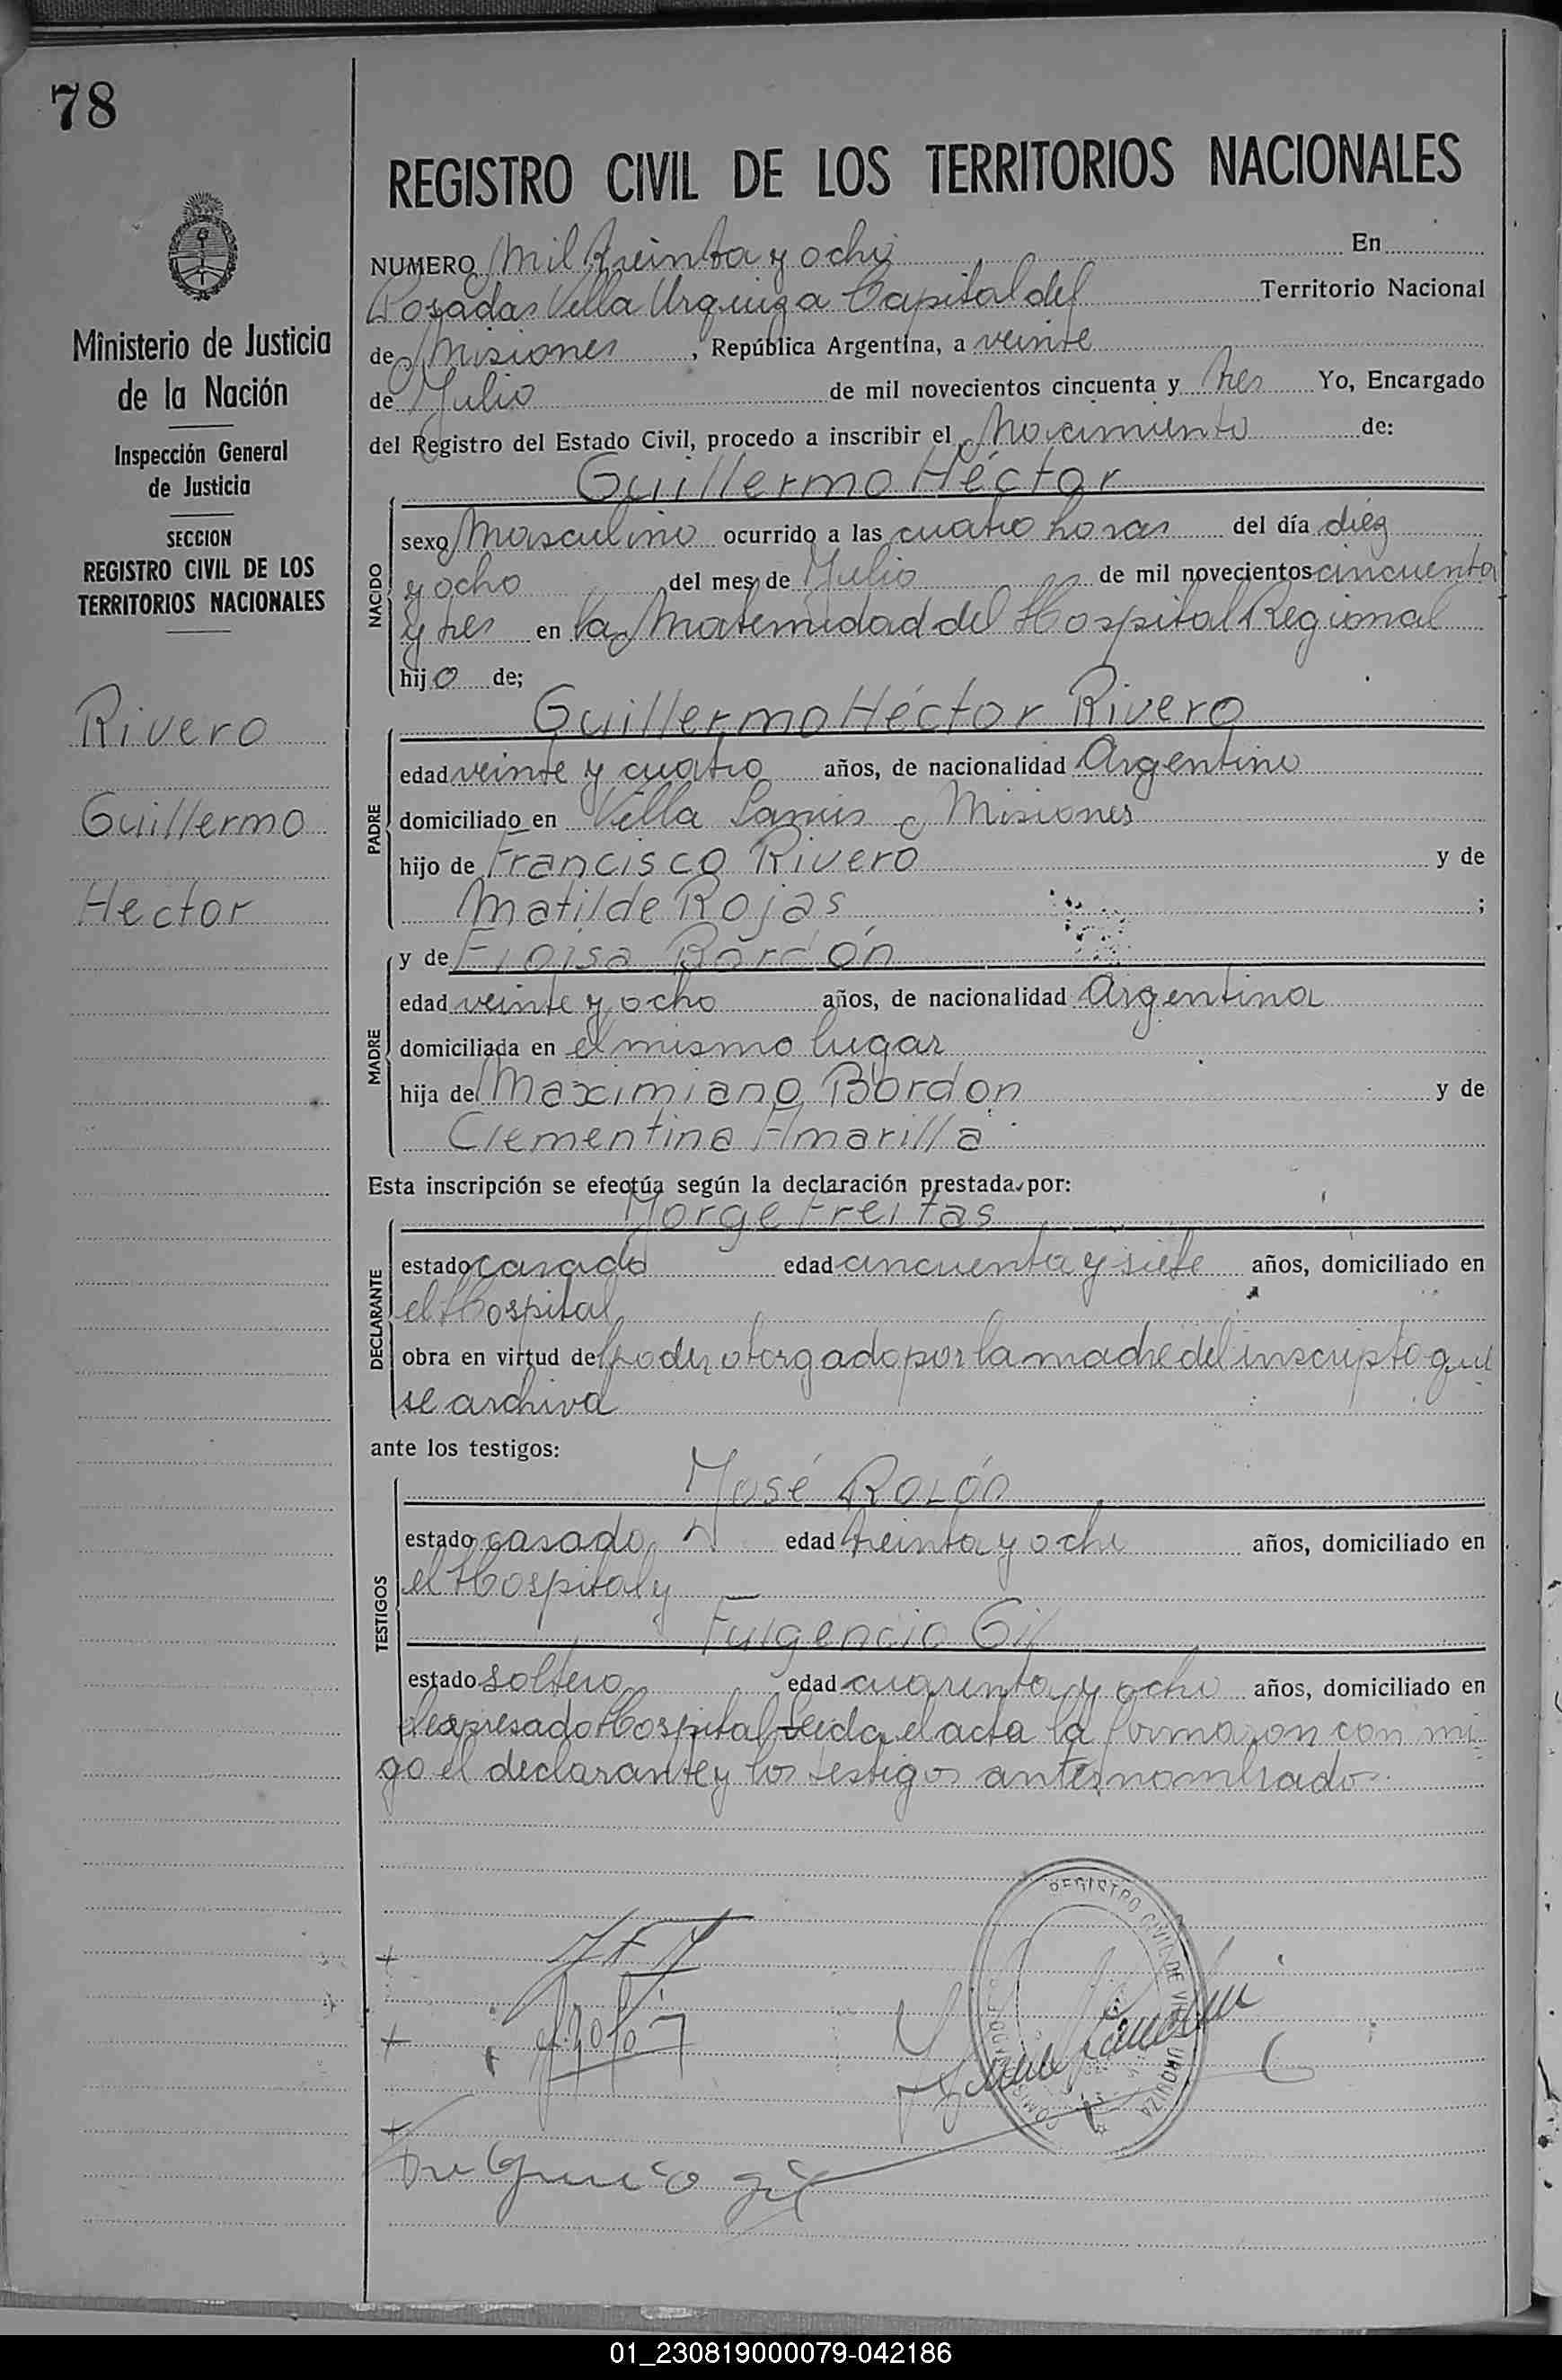 78
REGISTRO CIVIL DE LOS TERRITORIOS NACIONALES
Ministerio de Justicia
de la Nación
Inspección General
de Justicia
SECCION
REGISTRO CIVIL DE LOS
TERRITORIOS NACIONALES
Rivero
Guillermo
Hector
NUMERO Mil treinta y ocho En
Posadas Villa Urquiza Capital del Territorio Nacional
de Misiones, República Argentina, a veinte
de Julio de mil novecientos cincuenta y tres Yo, Encargado
del Registro del Estado Civil, procedo a inscribir el Nacimiento de:
Guillermo Héctor
NACIDO
sexo Masculino ocurrido a las cuatro horas del día diez
y ocho del mes de Julio de mil novecientos cincuenta
y tres en la Maternidad del Hospital Regional
hijo de;
Guillermo Héctor Rivero
PADRE
edad veinte y cuatro años, de nacionalidad Argentino
domiciliado en Villa Lanús Misiones
hijo de Francisco Rivero y de
Matilde Rojas;
MADRE
y de Eloisa
edad veinte y ocho años, de nacionalidad Argentina
domiciliada en el mismo lugar
hija de Maximiano Bordon y de
Clementina Amarilla
Esta inscripción se efectúa según la declaración prestada por:
Jorge Freitas
DECLARANTE
estado casado edad cincuenta y siete años, domiciliado en
el Hospital
obra en virtud del poder otorgado por la madre del inscripto que
se archiva
ante los testigos:
José Rolón
TESTIGOS
estado casado edad treinta y ocho años, domiciliado en
el Hospital y
Fulgencio Gil
estado soltero edad cuarenta y ocho años, domiciliado en
el expresado Hospital Leida el acta la firmaron con mi
go el declarante y los testigos antes nombrados.
REGISTRO CIVIL DE VILLA URQUIZA
01_230819000079-042186